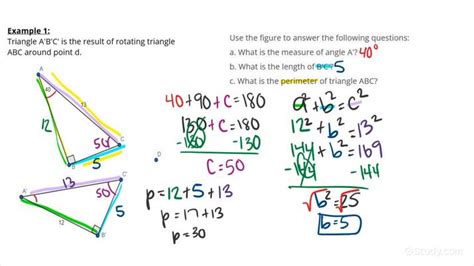 Example 1:
Triangle A'B'C' is the result of rotating triangle
ABC around point d.
Use the figure to answer the following questions:
a. What is the measure of angle A'? 40°
b. What is the length of B'C'? 5
c. What is the perimeter of triangle ABC?
40
13
12
50
C
5
B
D
13
A'
C'
50
5
12
B'
40+90+C=180
130+C=180
-130 -130
C=50
p=12+5+13
p=17+13
p=30
a²+b²=c²
12²+b²=13²
144+b²=169
-144 -144
√b²=√25
b=5
Study.com